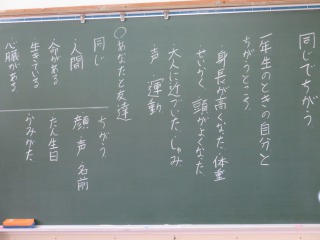 同じでちがう
一年生のときの自分と
ちがうところ
・身長が高くなった 体重
せいかく 頭がよくなった
大人に近づいた しゅみ
声 運動
○あなたと友達
同じ
・人間
・命がある
生きている
心臓がある
ちがう
顔 声 名前
たん生日
かみがた